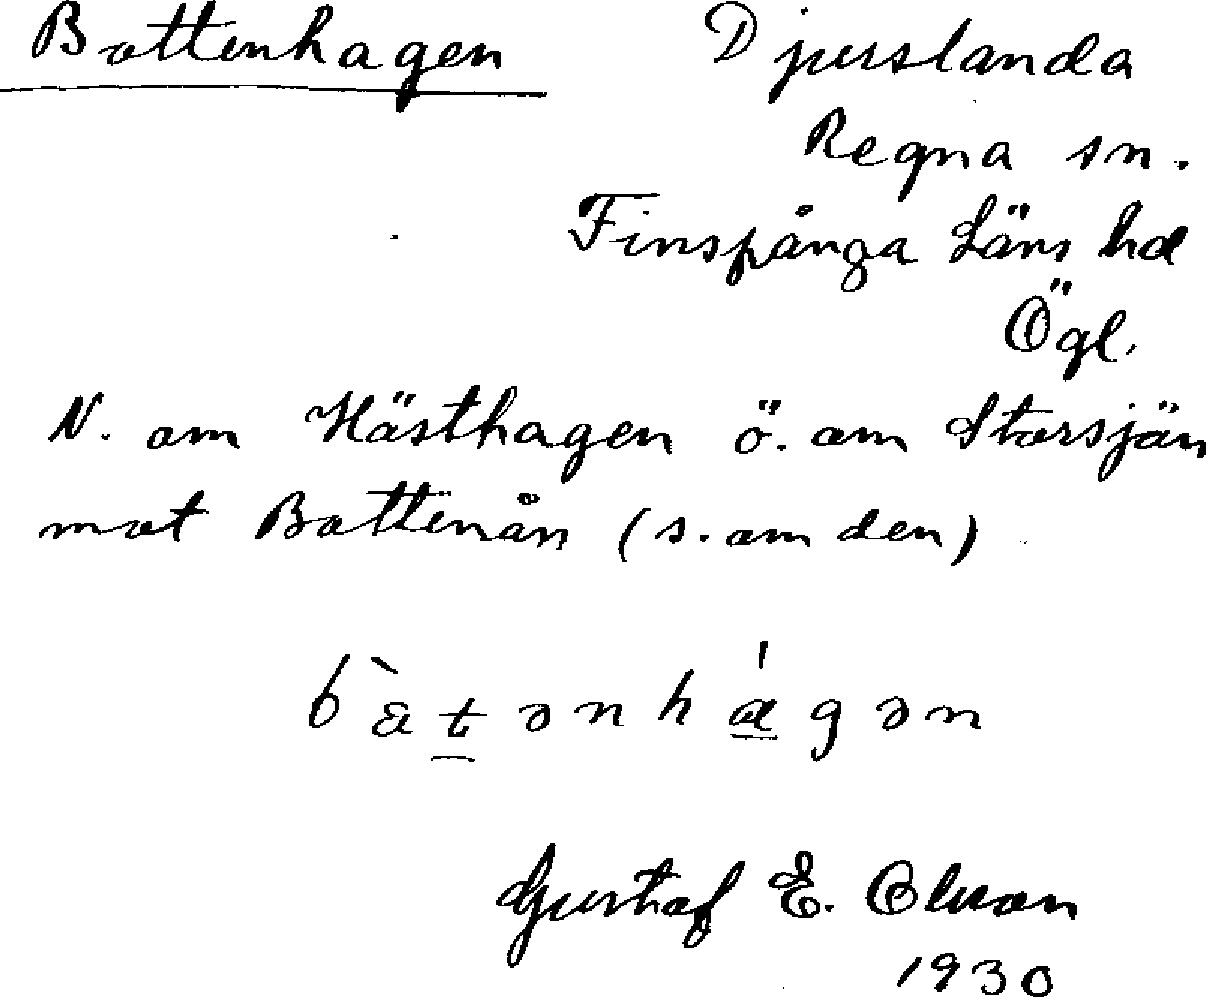 Bottenhagen Djurslanda
Regna sn.
Finspånga Läns hd
Ögl.
N. om Hästhagen ö. om Storsjön
mot Bottenån (s. om den)
Gustaf E. Olsson
1930